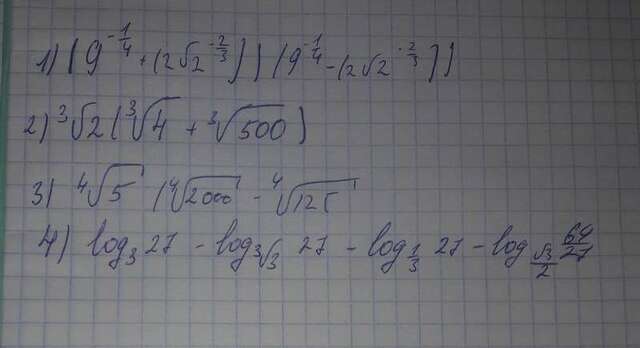 1) (9^{-\frac{1}{4}} + (2\sqrt{2}^{-\frac{2}{3}})) (9^{-\frac{1}{4}} - (2\sqrt{2}^{-\frac{2}{3}}))
2) \sqrt[3]{2} (\sqrt[3]{4} + \sqrt[3]{500})
3) \sqrt[4]{5} (\sqrt[4]{2000} - \sqrt[4]{125}
4) log_3 27 - log_{3\sqrt{3}} 27 - log_{\frac{1}{3}} 27 - log_{\frac{\sqrt{3}}{2}} \frac{64}{27}